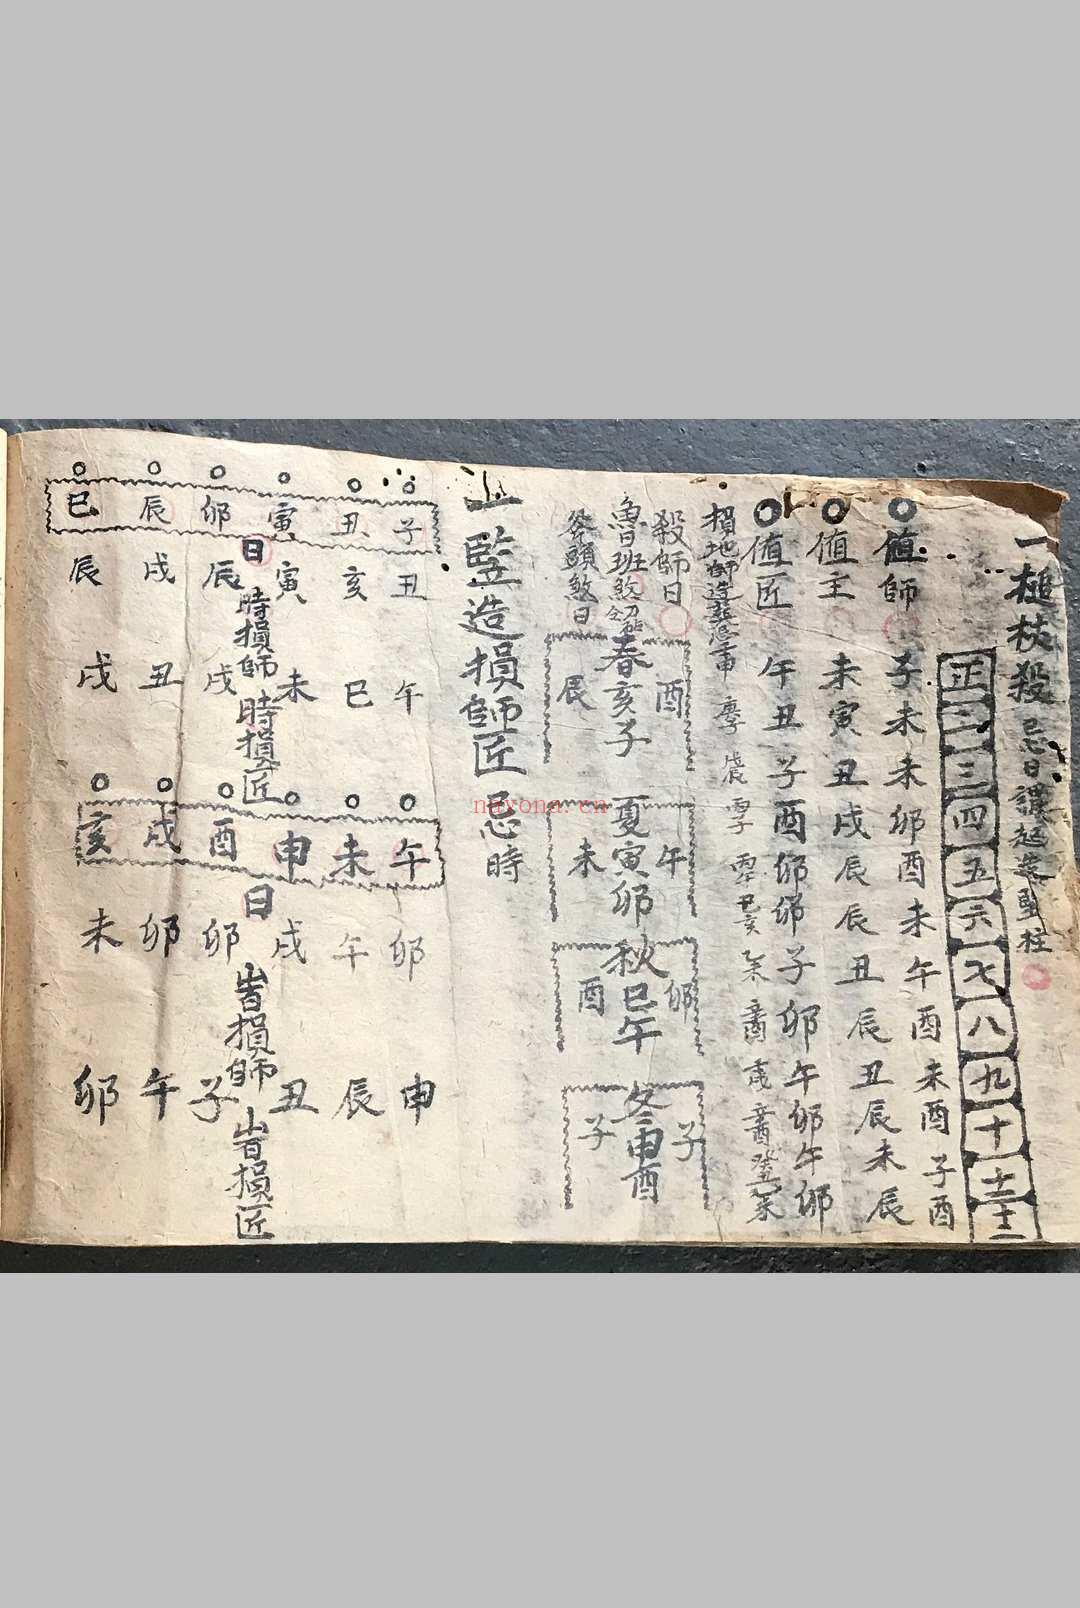 一槌杖殺忌日課起造竪柱
正二三四五六七八九十十一十二
值師 子未未卯酉未午酉未酉子酉
值主 未寅丑戌辰辰丑辰丑辰未辰
值匠 午丑子酉卯卯子卯午卯午卯
損地師造葬忌
殺師日 酉 午 卯 子
魯班煞 春亥子 夏寅卯 秋巳午 冬申酉
斧頭煞日 辰 未 酉 子
一竪造損師匠忌時
子丑寅卯辰巳
日
丑亥寅辰戌辰
時損師
午巳未戌丑戌
時損匠
午未申酉戌亥
日
卯午戌卯卯未
旹損師
申辰丑子午卯
旹損匠
nayona.cn